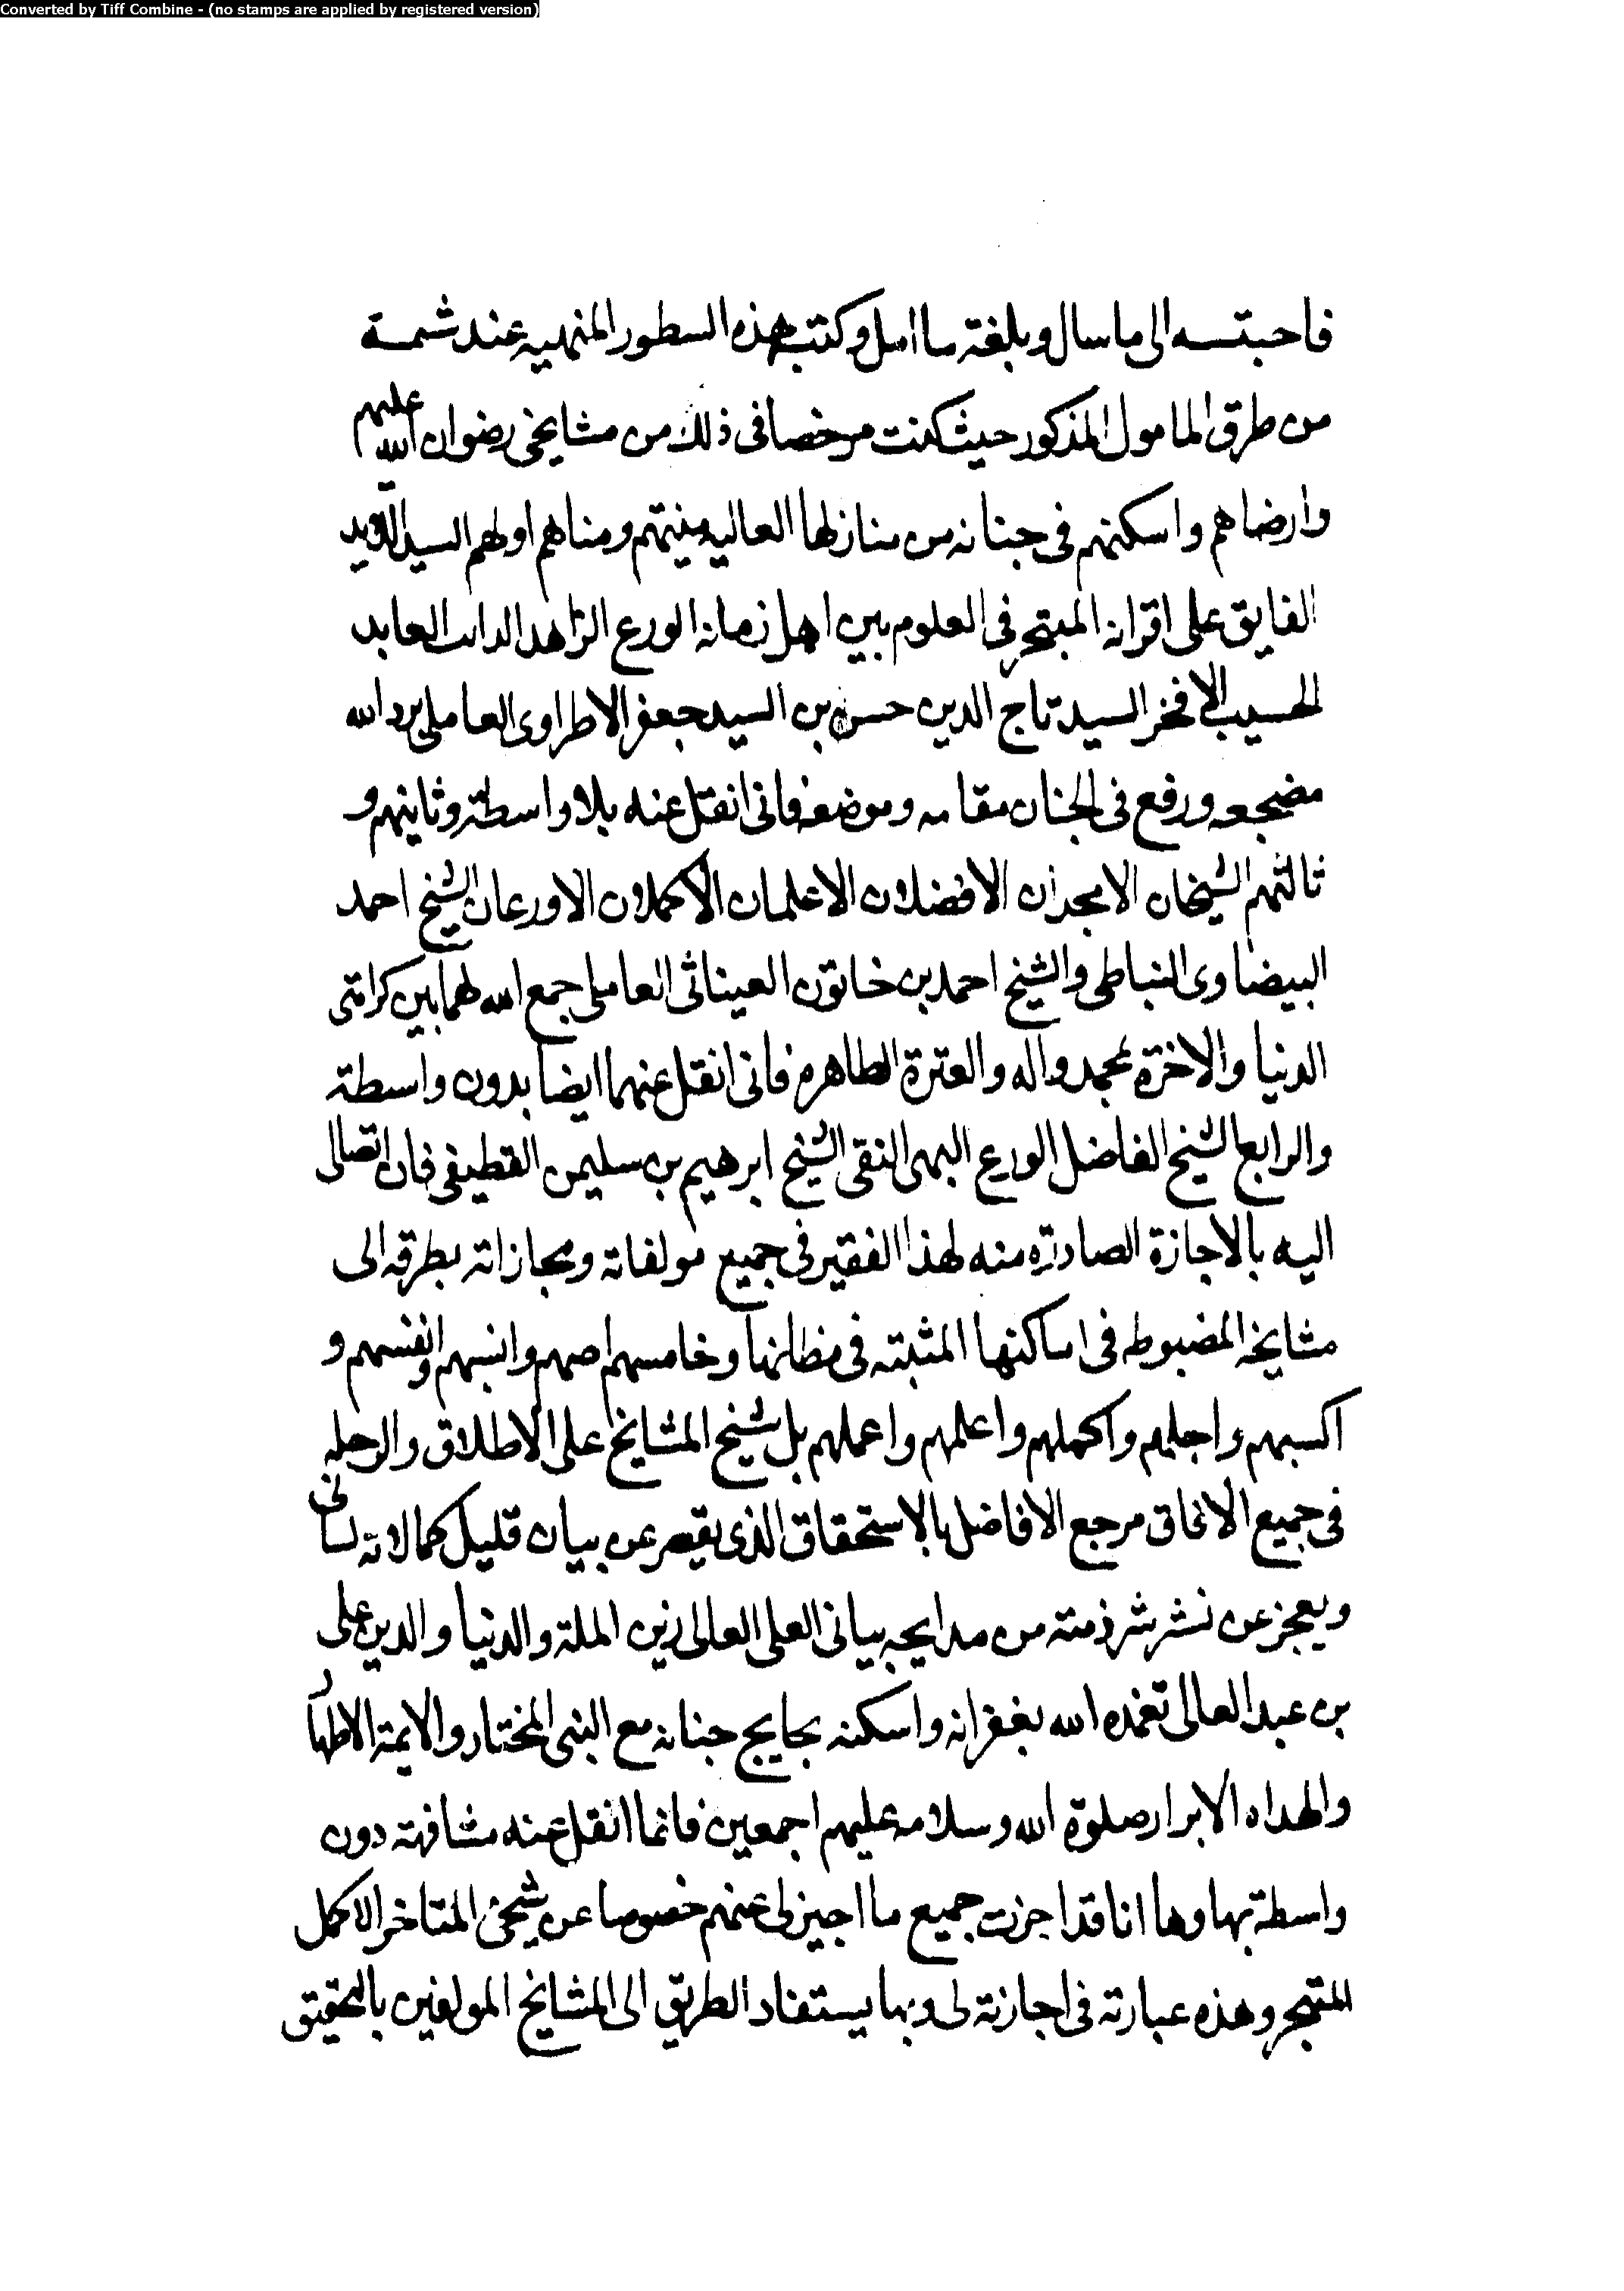 Converted by Tiff Combine - (no stamps are applied by registered version)
فاجبته الى ما سال وبلغته ما امل وكتبت هذه السطور المنهيه عند شمة
من طرق المامول المذكور حيث كنت مرخصا فى ذلك من مشايخى رضوان الله عليهم
وارضاهم واسكنهم فى جنانه من منازلها العاليه منيتهم ومناهم اولهم السيد الاويد
الفايق على اقرانه المبتحر فى العلوم بين اهل زمانه الورع الزاهد العابد
الحسيب الافخر السيد تاج الدين حسن بن السيد جعفر الاطراوى العاملى برد الله
مضجعه ورفع فى الجنان مقامه وموضعه فانى انقل عنه بلا واسطة وثانيهم و
ثالثهم الشيخان الامجدان الافضلان الاعلمان الاكملان الاورعان الشيخ احمد
البيضاوى النباطى والشيخ احمد بن خاتون العيناثى العاملى جمع الله لهما بين كرامتى
الدنيا والاخرة بمحمد واله والعترة الطاهره فانى انقل عنهما ايضا بدون واسطة
والرابع الشيخ الفاضل الورع البهى النقى الشيخ ابرهيم بن سليمن القطيفى فان اتصالى
اليه بالاجازة الصادرة منه لهذا الفقير فى جميع مولفاته ومجازاته بطرقه الى
مشايخه المضبوطه فى اماكنها المثبته فى مظانها وخامسهم اصهم وانسبهم وانفسهم و
اكسبهم واجلهم واكملهم واعلمهم واعملهم بل شيخ المشايخ على الاطلاق والرحله
فى جميع الافاق مرجع الافاضل بالاستحقاق الذى يقصر عن بيان قليل كمالاته لسانى
ويعجز عن نشر شرذمته من مدايحه بيانى العلى العالى زين الملة والدنيا والدين على
بن عبد العالى تغمده الله بغفرانه واسكنه بحابح جنانه مع النبى المختار والايمة الاطهار
والهداه الابرار صلوة الله وسلامه عليهم اجمعين فانما انقل عنه مشافهة دون
واسطة بها وها انا قد اجزت جميع ما اجيز لى عنهم خصوصا عن شيخى المتاخر الاكمل
المتبحر وهذه عبارته فى اجازته لى وبها يستفاد الطريق الى المشايخ المولفين بالتحقيق